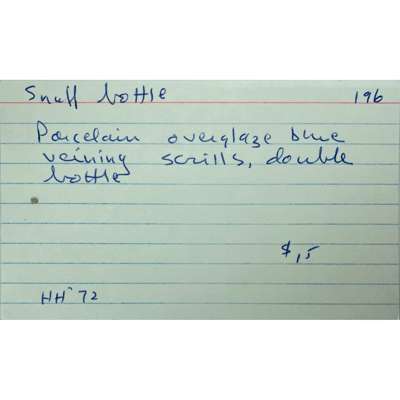 Snuff bottle 196
Porcelain overglaze blue
veining scrills, double
bottle
$,15
HH '72